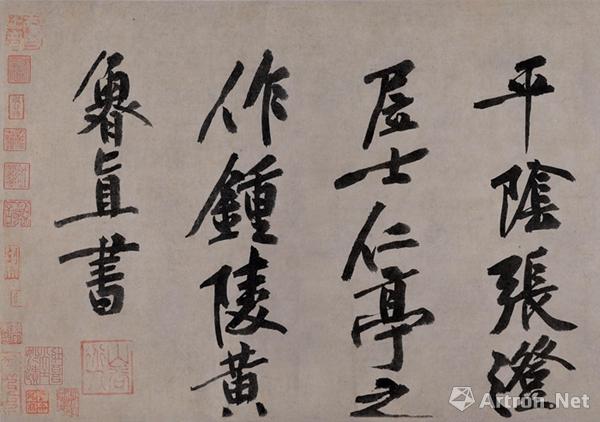 平陰張澄
居士仁亭之
作鍾陵黃
魯直書
Artron.Net